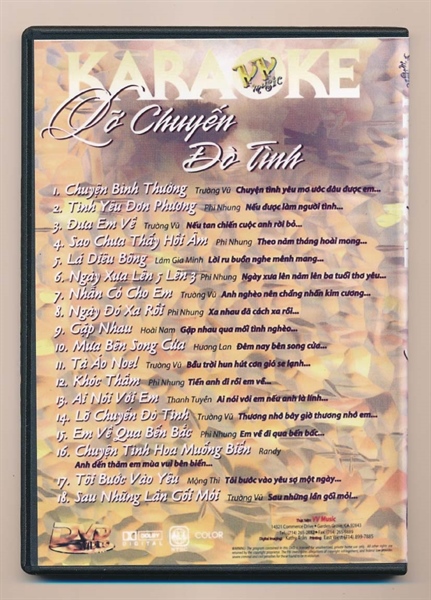 KARAOKE
VV
music
Lỡ Chuyến
Đò Tình
1. Chuyện Bình Thường Trường Vũ Chuyện tình yêu mơ ước đâu được em...
2. Tình Yêu Đơn Phương Phi Nhung Nếu được làm người tình...
3. Đưa Em Về Trường Vũ Nếu tan chiến cuộc anh rời bỏ...
4. Sao Chưa Thấy Hồi Âm Phi Nhung Theo năm tháng hoài mong...
5. Lá Diêu Bông Lâm Gia Minh Lời ru buồn nghe mênh mang...
6. Ngày Xưa Lên 5 Lên 3 Phi Nhung Ngày xưa lên năm lên ba tuổi thơ yêu...
7. Nhẫn Cỏ Cho Em Trường Vũ Anh nghèo nên chẳng nhẫn kim cương...
8. Ngày Đó Xa Rồi Phi Nhung Xa nhau đã cách xa rồi...
9. Gặp Nhau Hoài Nam Gặp nhau qua mối tình nghèo...
10. Mưa Bên Song Cửa Hương Lan Đêm nay bên song cửa...
11. Tà Áo Noel Trường Vũ Bầu trời hun hút cơn gió se lạnh...
12. Khóc Thầm Phi Nhung Tiễn anh đi rồi em về...
13. Ai Nói Với Em Thanh Tuyền Ai nói với em nếu anh là lính...
14. Lỡ Chuyến Đò Tình Trường Vũ Thương nhỏ bây giờ thương nhỏ em...
15. Em Về Qua Bến Bắc Phi Nhung Em về đi qua bến bắc...
16. Chuyện Tình Hoa Muống Biển Randy
Anh đến thăm em mùa vui bên biển...
17. Tôi Bước Vào Yêu Mộng Thi Tôi bước vào yêu sợ một ngày...
18. Sau Những Lần Gối Mỏi Trường Vũ Sau những lần gối mỏi...
DVD
DOLBY
DIGITAL
ALL
COLOR
VV Music